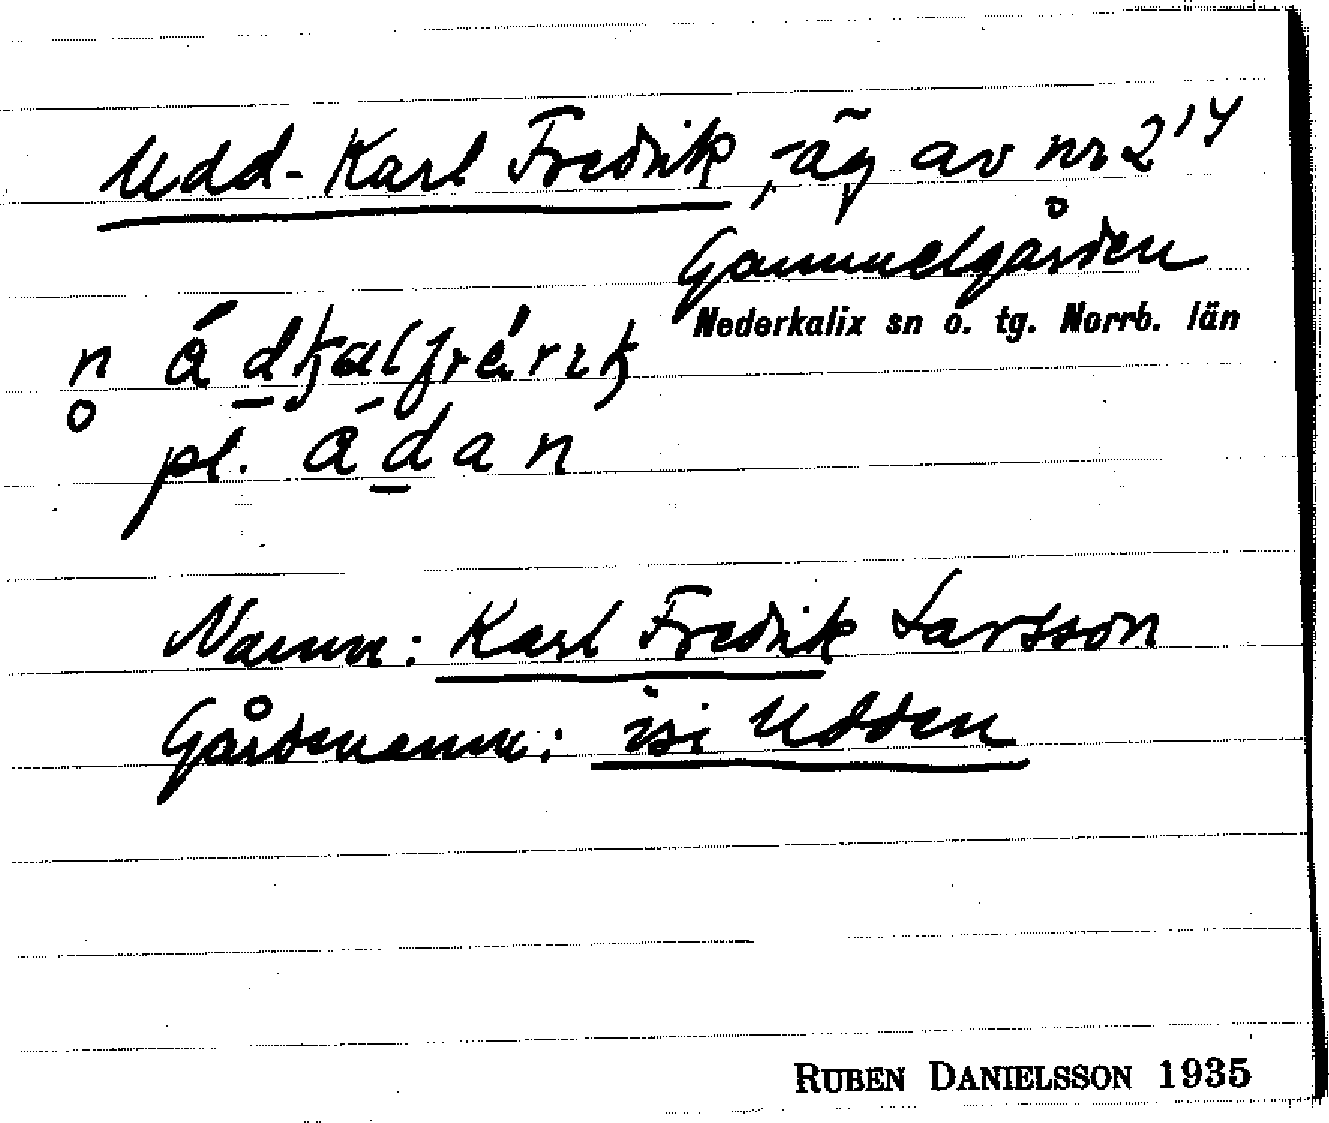 Udd-Karl Fredrik, äg av nr 2¹⁴
Gammelgården
Nederkalix sn o. tg. Norrb. län
pl.
Namn: Karl Fredrik Larsson
Gårdsnamn: isi Udden
RUBEN DANIELSSON 1935